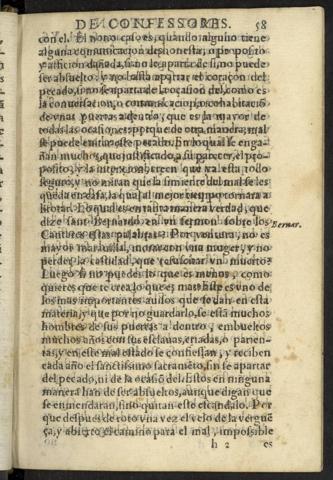 DE CONFESSORES. 58
con el. El otro caso es, quando alguno tiene
alguna comunicacion deshonesta, o proposito
y aficion dañada, si no se aparta de si, no puede
ser absuelto: y no basta apartar el coraçon del
pecado, si no se aparta de la ocasion del, como es
la conuersacion, o comunicacion, o cohabitaciõ
de vnas puertas a dentro, que es la mayor de
todas las ocasiones: porque de otra manera, mal
se puede euitar este pecado. En lo qual se enga-
ñan muchos, que justificado, a su parecer, el pro-
posito, y la intencion, creen que ya esta todo
seguro, y no miran que la simiente del mal se les
queda en casa, la qual al mejor tiempo tornara a
brotar. Lo qual es en tanta manera verdad, que
dize sant Bernardo, en vn sermon sobre los
Bernar.
Cantares estas palabras: Por ventura, no es
mayor marauilla, morar con vna muger, y no
perder la castidad, que resuscitar vn muerto?
Luego si no puedes lo que es menos, como
quieres que te crea lo que es mas? Este es vno de
los mas importantes auisos que se dan en esta
materia, y que por no guardarlo, se està muchos
hombres de sus puertas a dentro, embueltos
muchos años con sus esclauas, criadas, o parien-
tas, y en este mal estado se confiessan, y reciben
cada año el sanctissimo sacramẽto, sin se apartar
del pecado, ni de la ocasiõ del. Estos en ninguna
manera han de ser absueltos, aunque digan que
se enmendaran, sino quitan este escandalo. Por
que despues de roto vna vez el velo de la verguẽ
ça, y abierto el camino para el mal, impossible
h 2 es